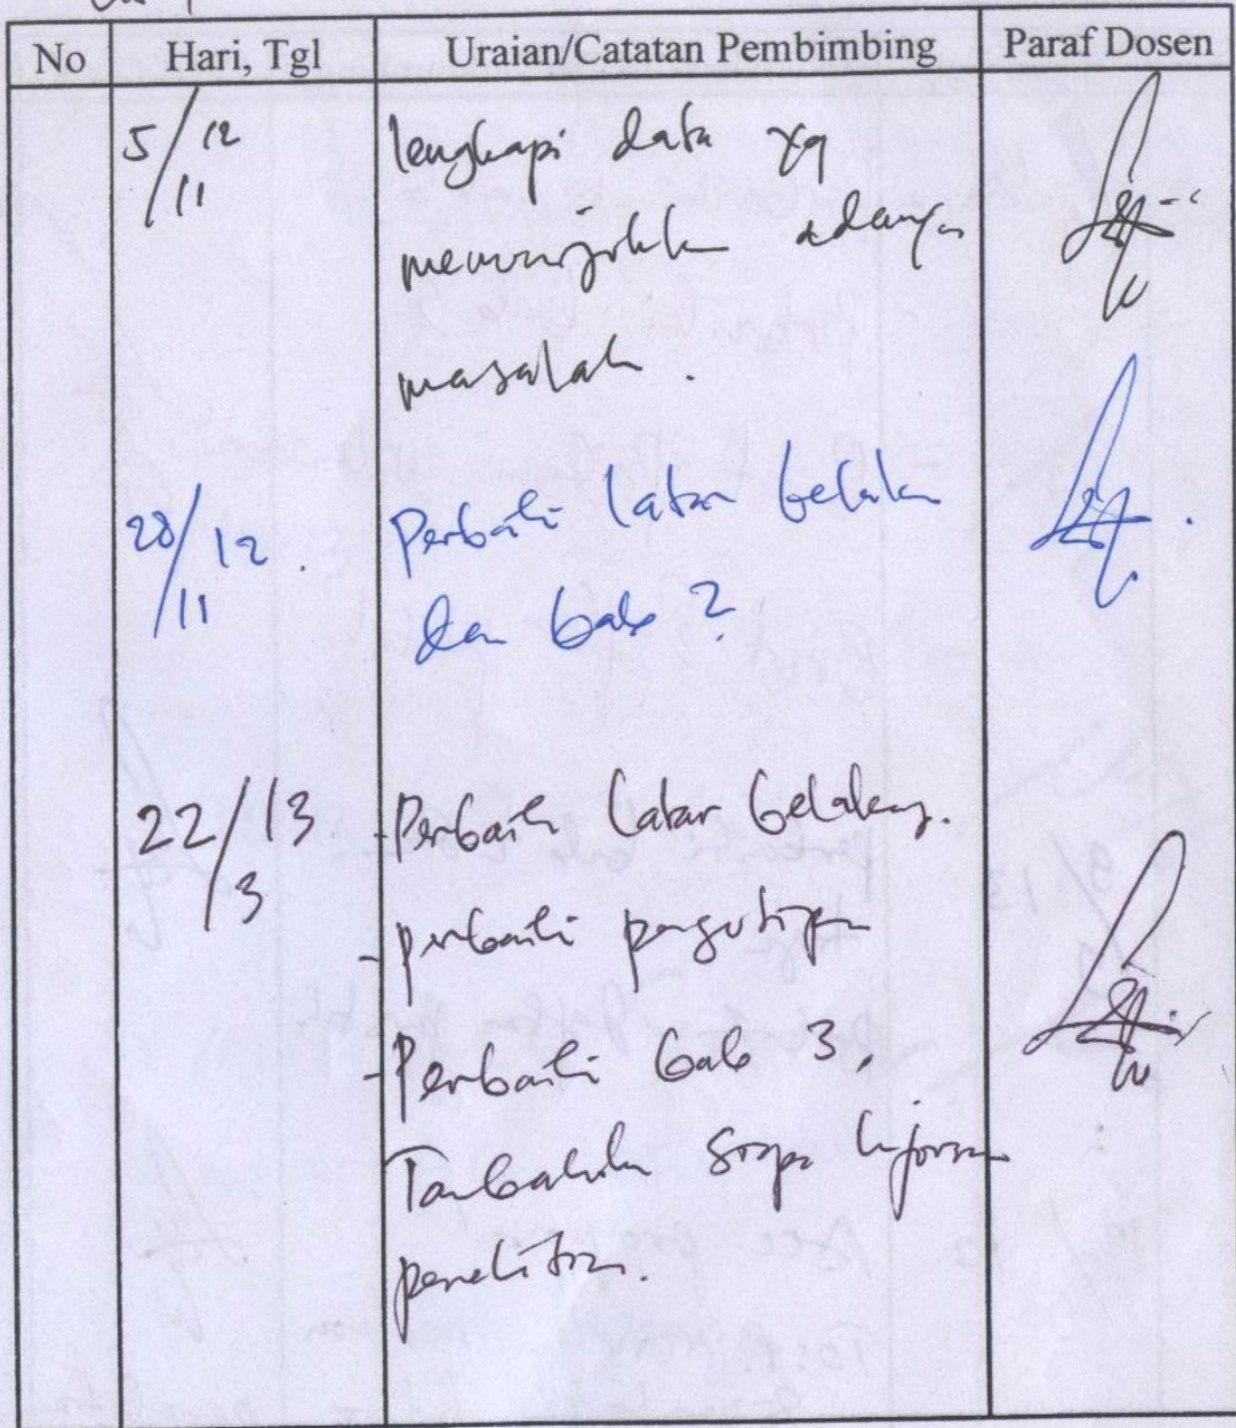 No Hari, Tgl Uraian/Catatan Pembimbing Paraf Dosen
5/12 lengkapi data yg
/11
menunjukkan adanya
masalah.
28/12. Perbaiki latar belakang
/11
dan bab 2
22/13 - Perbaiki latar belakang.
/3
- perbaiki pengutipan
- Perbaiki bab 3.
Tambahkan siapa informan
penelitian.